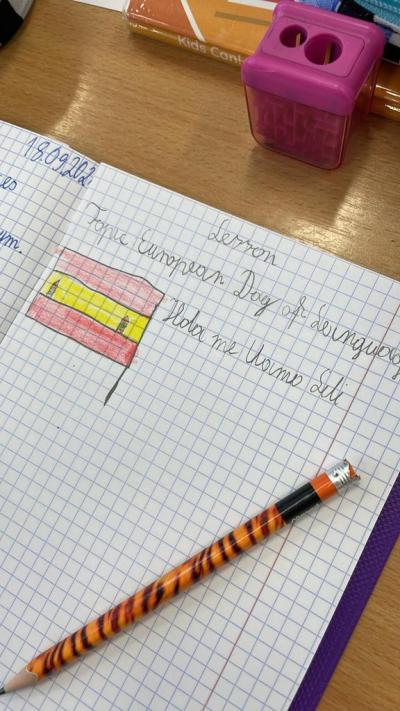 Kids Can
18.09.202
es
ym.
Lesson
Topic: European Day of Lenguag
Hola me llamo Leli